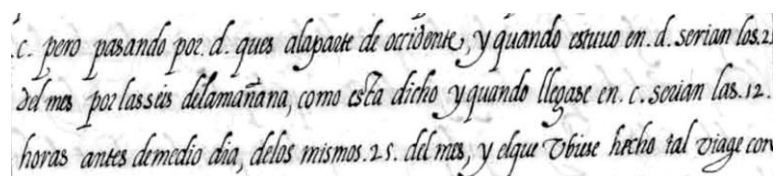 .c. pero pasando por .d. ques alaparte de occidente, y quando estuuo en .d. serian los .2
del mes por las seis delamañana, como esta dicho y quando llegase en .c. serian las .12.
horas antes demedio dia, delos mismos .25. del mes, y elque vbiese hecho tal viage con